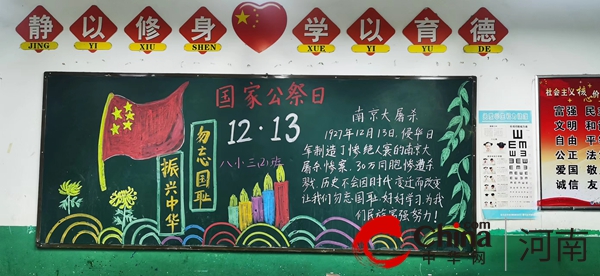 静以修身
学以育德
JING YI XIU SHEN
XUE YI YU DE
国家公祭日
12·13
八小三(2)班
勿忘国耻
振兴中华
南京大屠杀
1937年12月13日,侵华日
军制造了惨绝人寰的南京大
屠杀惨案,30万同胞惨遭杀
戮,历史不会因时代变迁而改变
让我们勿忘国耻好好学习,为我
们民族富强努力!
社会主义核心价
富强 民
文明 和
自由 平
公正 法
爱国 敬
诚信 友
China.com
中华网
河南